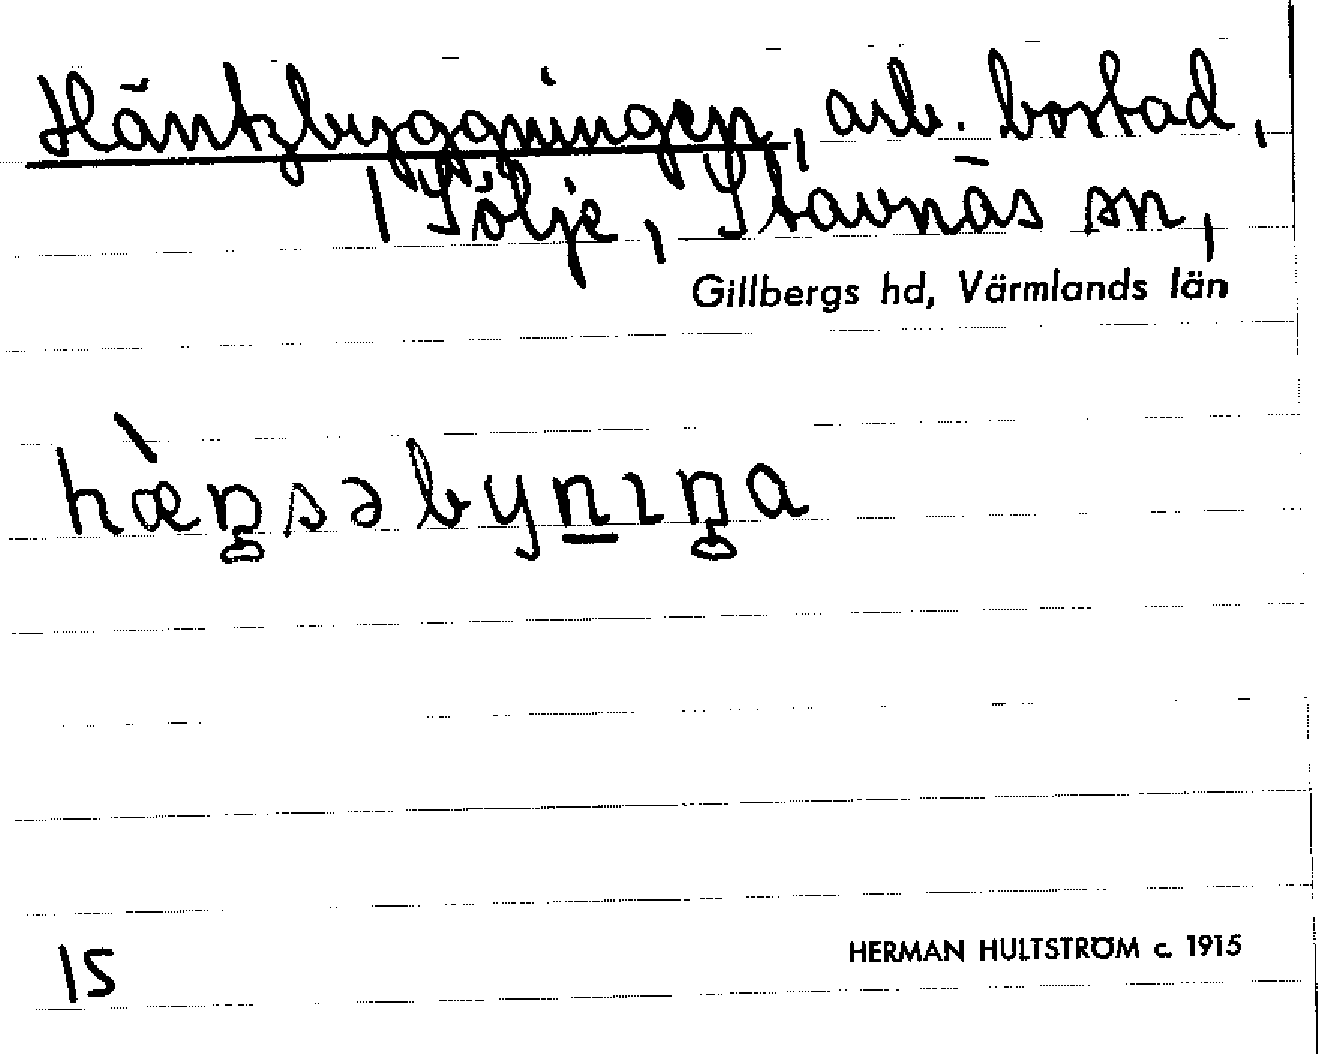 Häntzbyggningen, arb. bostad,
i Sölje, Stavnäs sn,
Gillbergs hd, Värmlands län
15
HERMAN HULTSTRÖM c. 1915